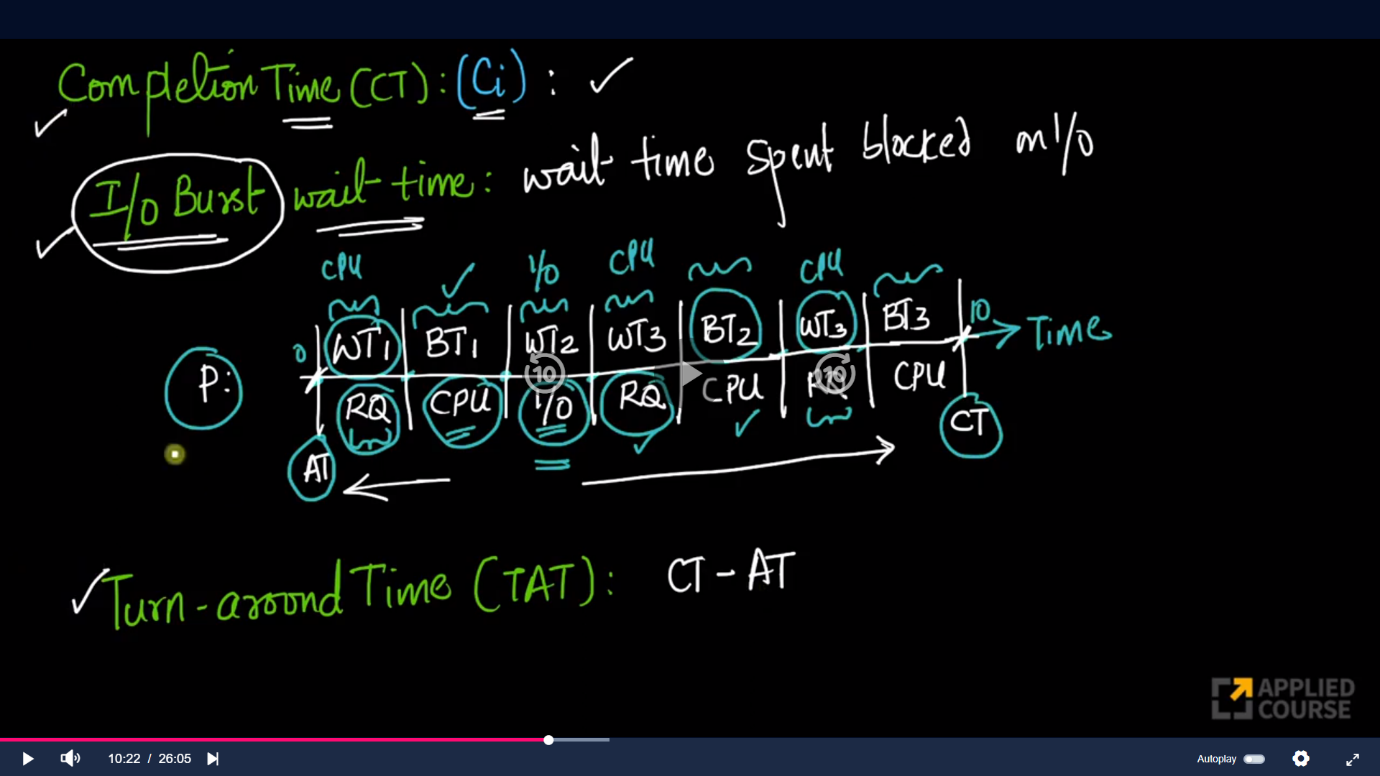 Completion Time (CT): (Ci) : ✓
I/O Burst wait time: wait time spent blocked on I/O
CPU ✓ I/O CPU CPU
0 WT1 BT1 WT2 WT3 BT2 WT3 BT3 10 Time
P: RQ CPU I/O RQ CPU RQ CPU
10 10
AT CT
Turn-around Time (TAT): CT - AT
APPLIED
COURSE
10:22 / 26:05 Autoplay